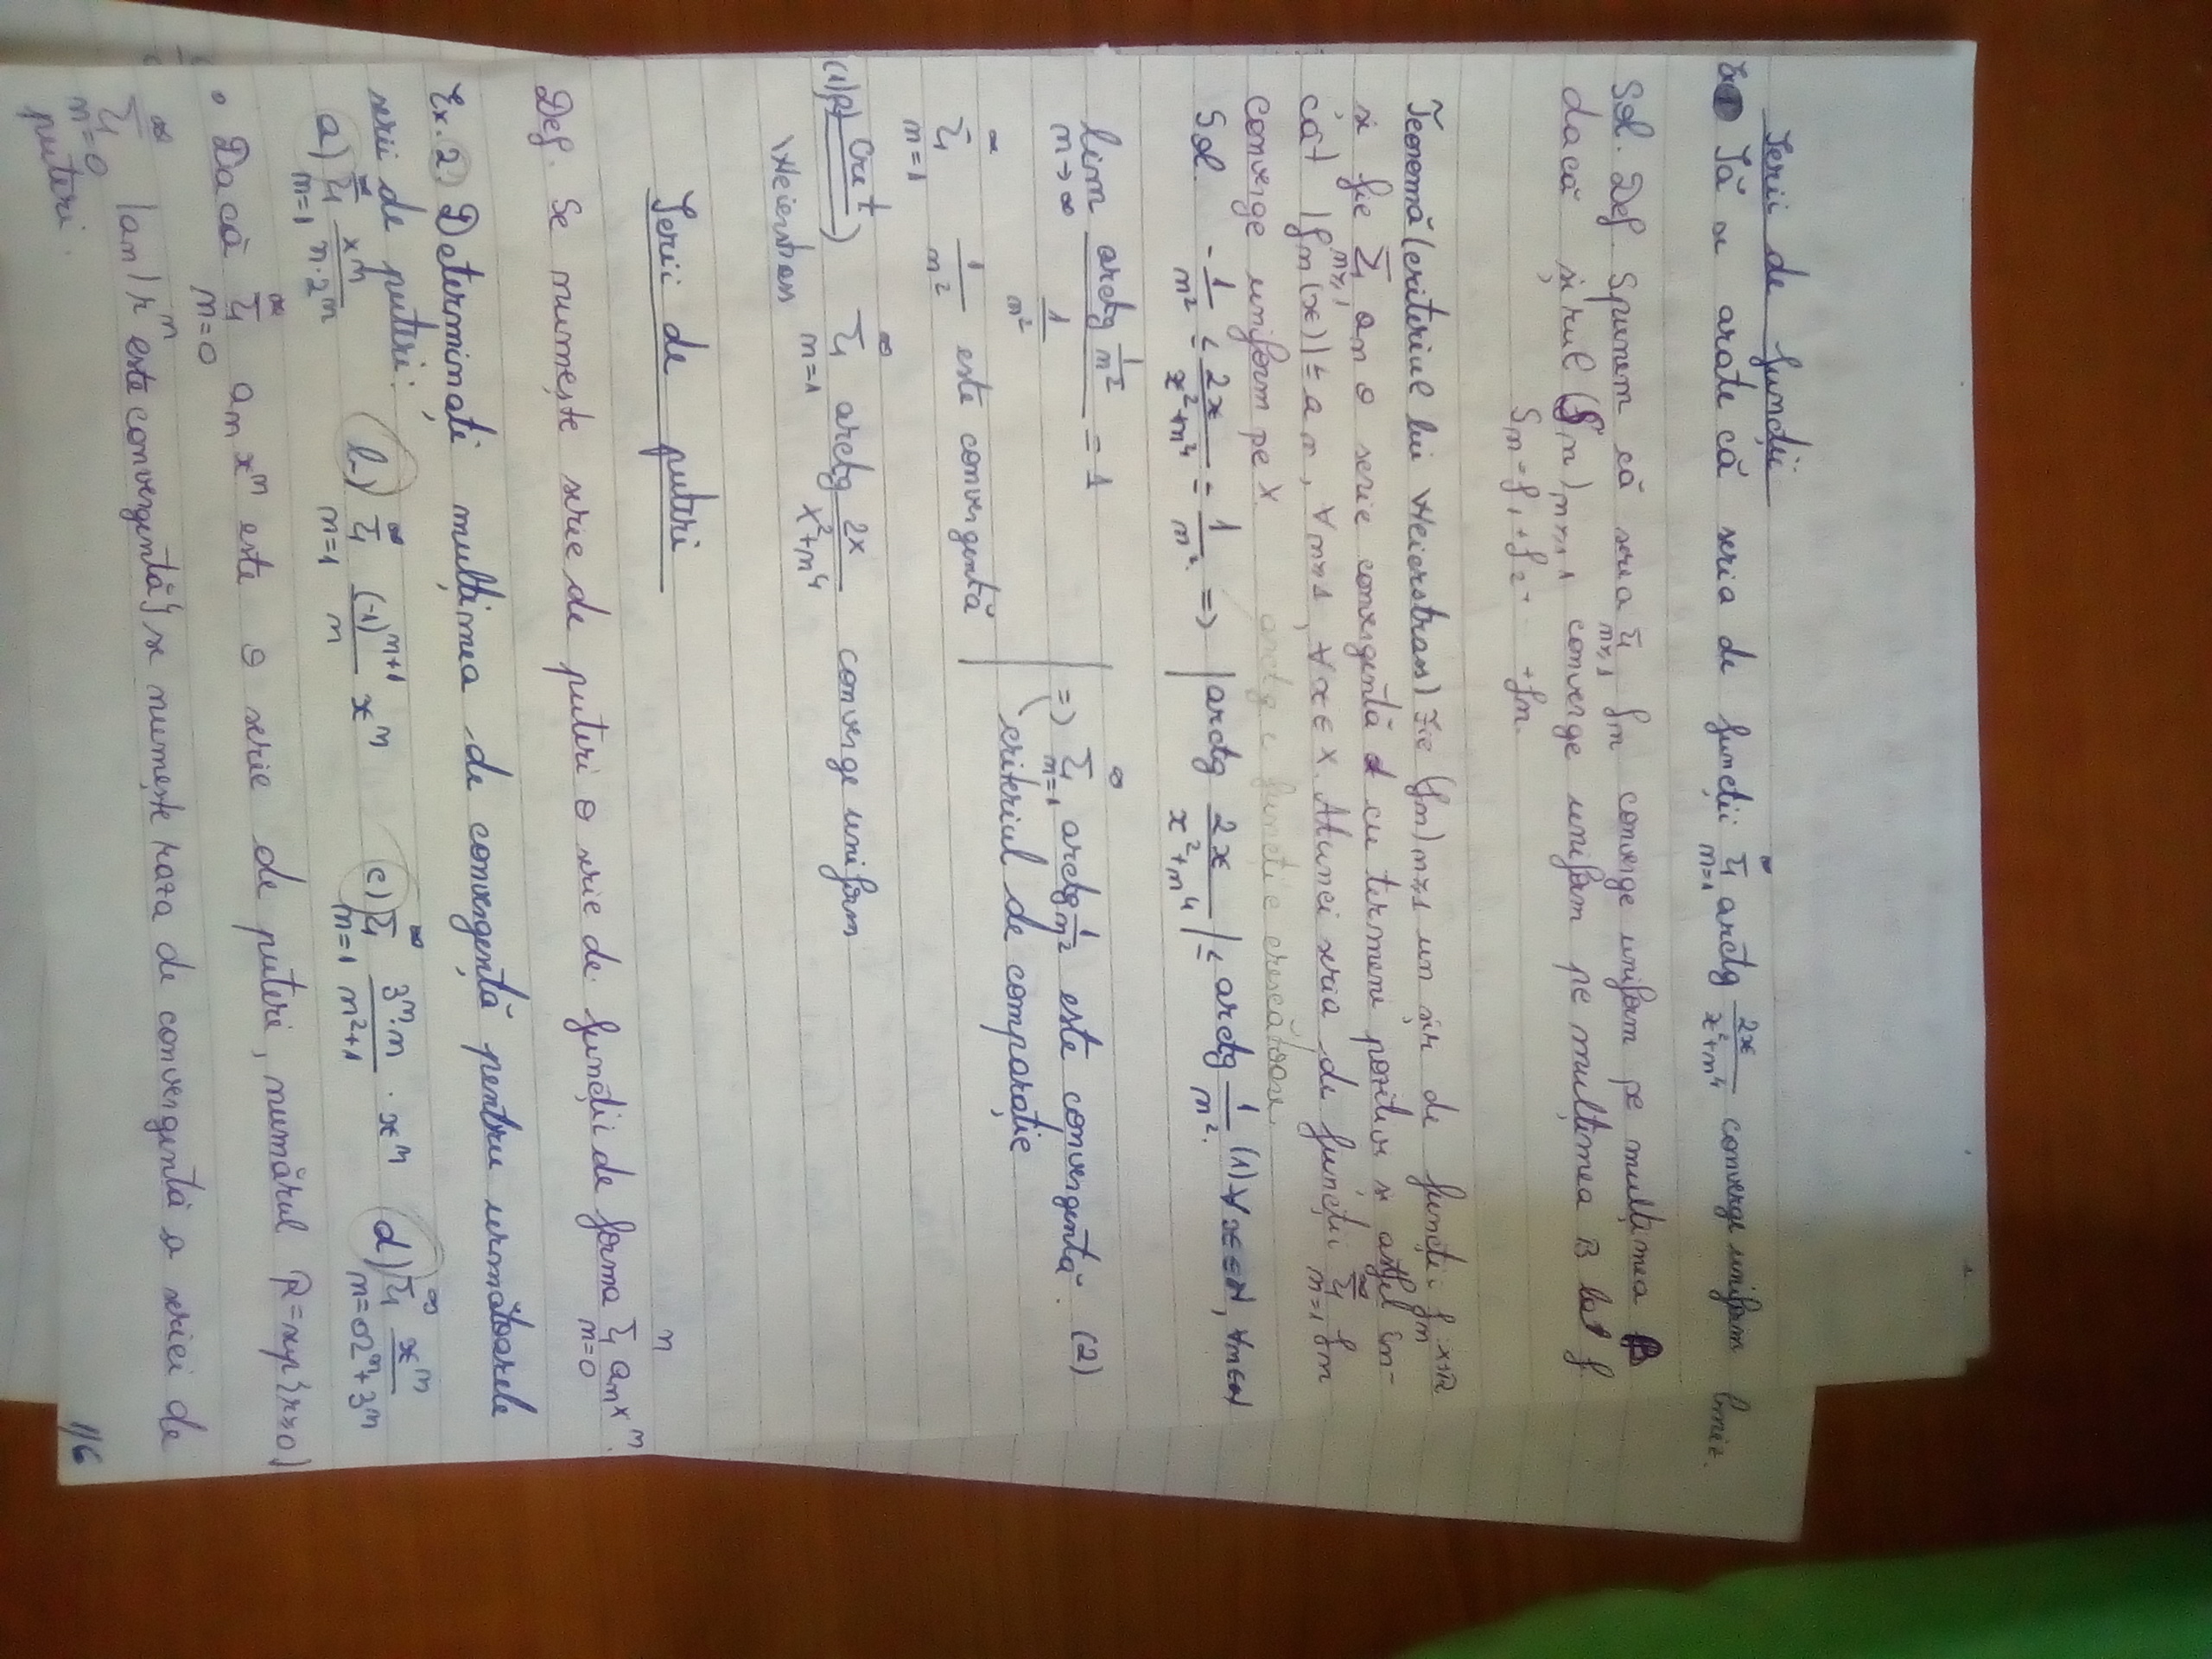 Serii de funcții
Ex 1 Să se arate că seria de funcții ∞Σn=1 arctg 2x/(x²+n⁴) converge uniform
Sol. Def Spunem că seria Σn≥1 fn converge uniform pe mulțimea B
dacă șirul (Sn)n≥1 converge uniform pe mulțimea B f
Sn=f1+f2+ +fn.
Teoremă (criteriul lui Weierstrass) Fie (fn)n≥1 un șir de funcții fn
și fie Σn≥1 an o serie convergentă cu termeni pozitivi și astfel în-
cât |fn(x)|≤an, ∀n≥1, ∀x∈X. Atunci seria de funcții ∞Σn=1 fn
converge uniform pe X.
arctg e funcție crescătoare
Sol. -1/n² ≤ 2x/(x²+n⁴) ≤ 1/n². => |arctg 2x/(x²+n⁴)| ≤ arctg 1/n². (1) ∀x∈N, ∀n∈N
lim n→∞ (arctg 1/n²)/(1/n²) = 1
=> ∞Σn=1 arctg 1/n² este convergentă. (2)
∞Σn=1 1/n² este convergentă
criteriul de comparație
Crit
Weierstrass
∞Σn=1 arctg 2x/(x²+n⁴) converge uniform
Serii de puteri
Def. Se numește serie de puteri o serie de funcții de forma nΣn=0 an xⁿ.
Ex. 2) Determinați mulțimea de convergență pentru următoarele
serii de puteri:
a) ∞Σn=1 xⁿ/(n·2ⁿ) b) ∞Σn=1 (-1)ⁿ⁺¹/n xⁿ c) ∞Σn=1 3ⁿ·n/(n²+1) · xⁿ d) ∞Σn=0 xⁿ/(2ⁿ+3ⁿ)
• Dacă ∞Σn=0 an xⁿ este o serie de puteri, numărul R=sup{r≥0|
∞Σn=0 |an|rⁿ este convergentă} se numește raza de convergență a seriei de
puteri.
1/6